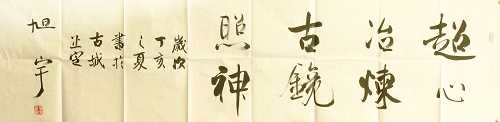 超心
冶煉
古鏡
照神
歲次
丁亥
之夏
書於
古城
正定
旭宇